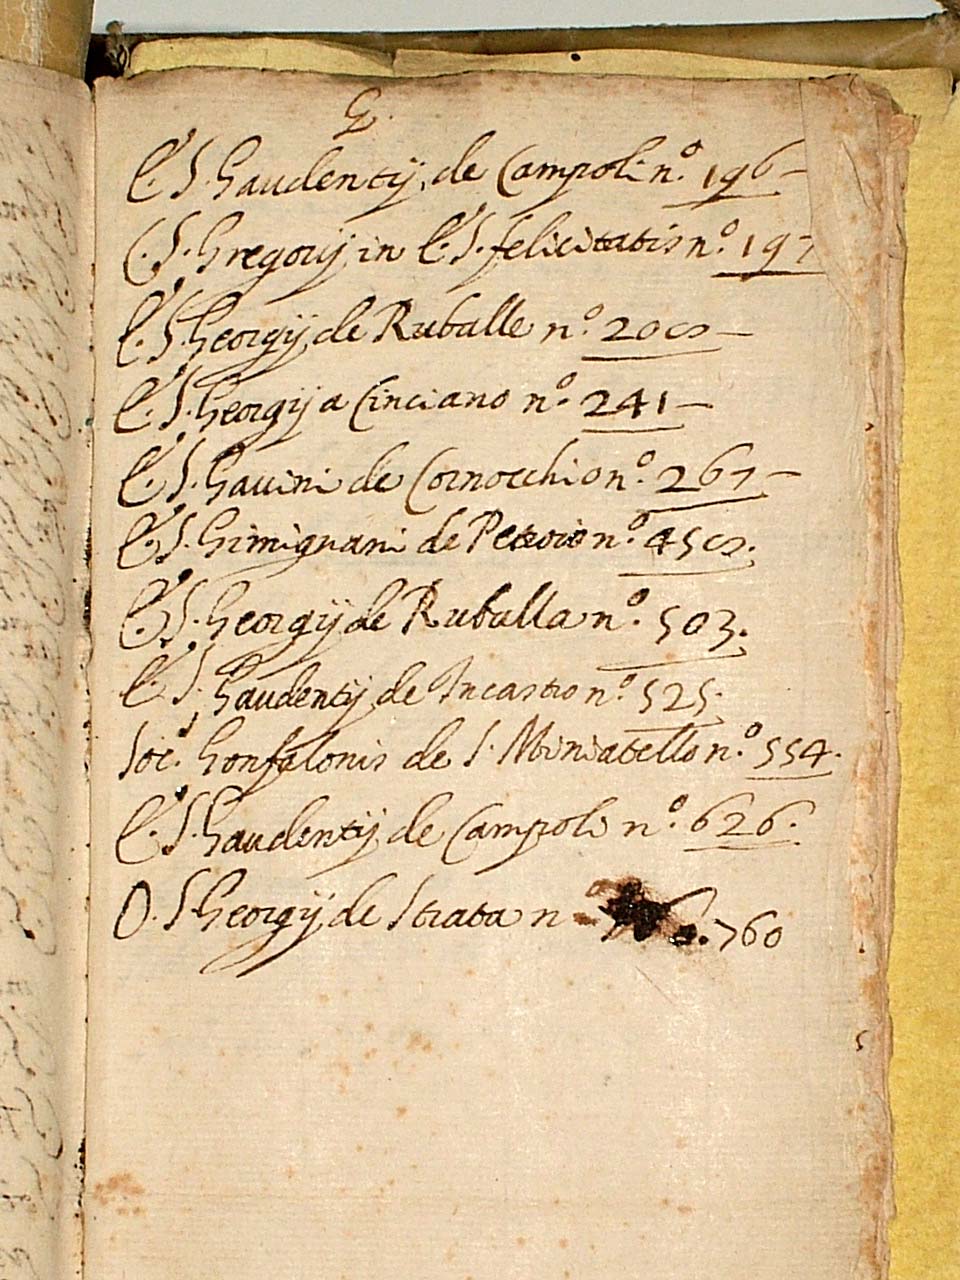 G.
E. S. Gaudentij de Campoli n.º 196 –
C. S. Gregorij in E. S. felicitatis n.º 197
E. S. Georgij de Ruballe n.º 200 –
E. S. Georgij a Cinciano n.º 241 –
E. S. Gauini de Cornocchio n.º 267 –
E. S. Giminiani de Petroio n.º 450.
E. S. Georgij de Ruballa n.º 503.
E. S. Gaudentij de Incastro n.º 525.
Soc. Gonfalonis de S. Miniatello n.º 554.
E. S. Gaudentij de Campoli n.º 626.
O. S. Georgij de Strata n 760